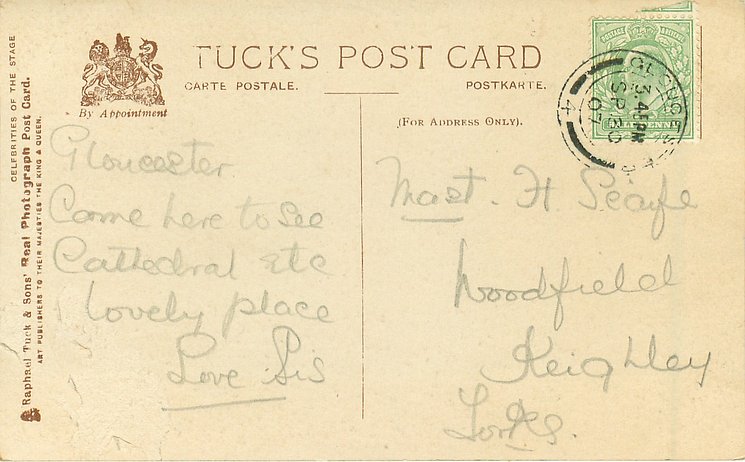 TUCK'S POST CARD
CARTE POSTALE. POSTKARTE.
By Appointment
(FOR ADDRESS ONLY).
CELEBRITIES OF THE STAGE
Raphael Tuck & Sons' Real Photograph Post Card.
ART PUBLISHERS TO THEIR MAJESTIES THE KING & QUEEN.
POSTAGE
GLOUCESTER
3.45PM
SP 30
07
4
Gloucester
Come here to see
Cathedral etc
lovely place
Love Sis
Mast. H.
Woodfield
Keighley
Yorks.